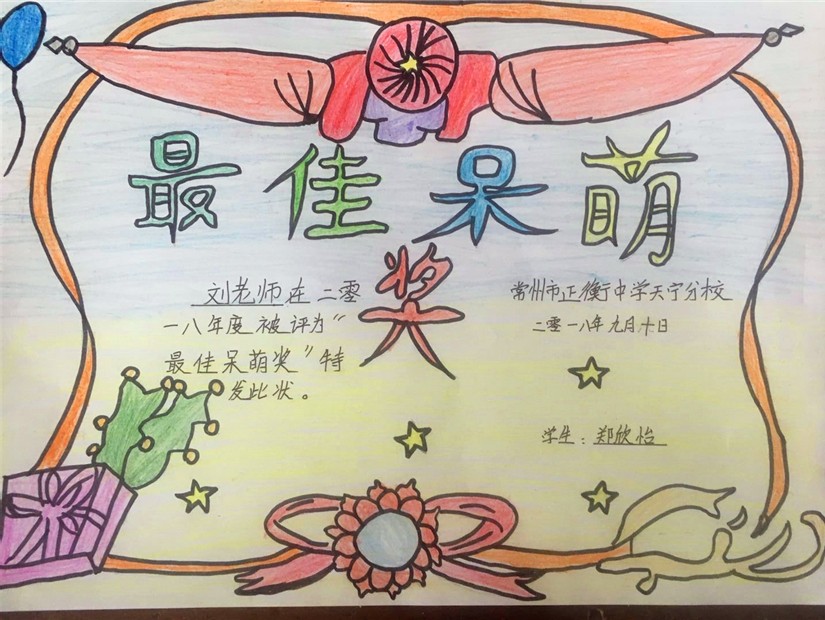 最佳呆萌
奖
刘老师在二零
一八年度被评为“
最佳呆萌奖”特
发此状。
常州市正衡中学天宁分校
二零一八年九月十日
学生：郑欣怡